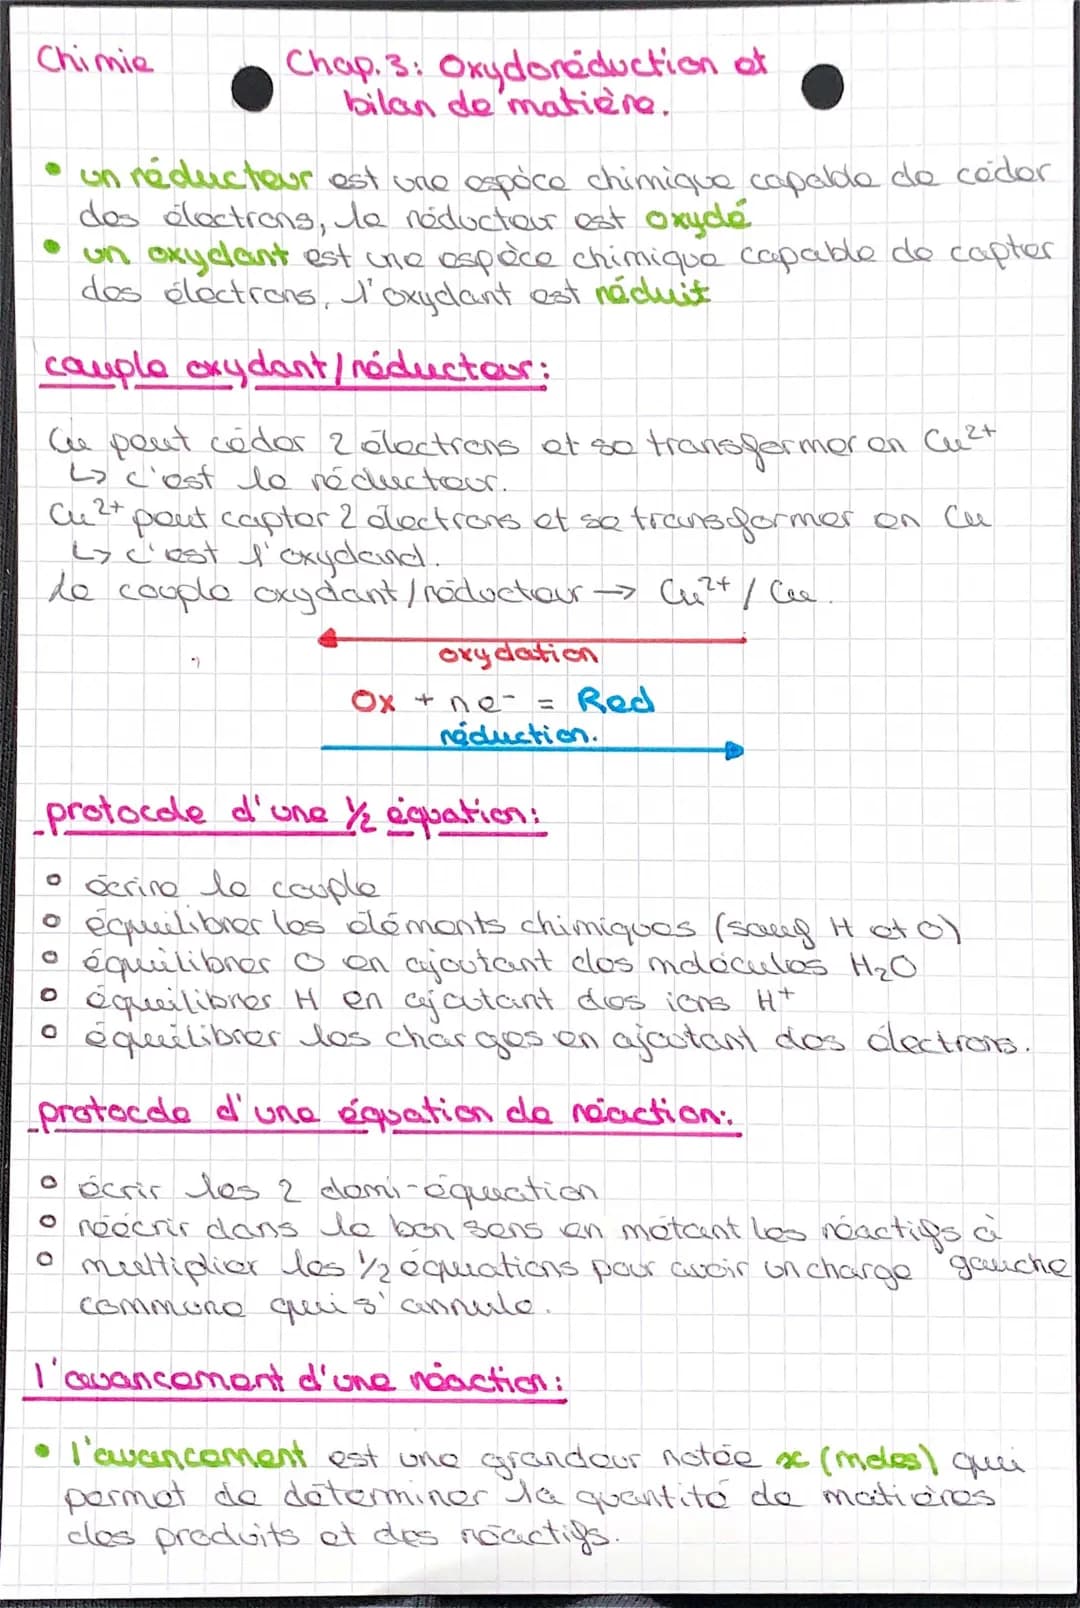 Chimie
Chap.3: Oxydoréduction et
bilan de matière.
• un réducteur est une espèce chimique capable de céder
des électrons, le réducteur est oxydé
• un oxydant est une espèce chimique capable de capter
des électrons, l'oxydant est réduit
couple oxydant/réducteur:
Cu peut céder 2 électrons et se transformer en Cu²⁺
↳ c'est le réducteur.
Cu²⁺ peut capter 2 électrons et se transformer en Cu
↳ c'est l'oxydand.
le couple oxydant/réducteur → Cu²⁺/Cu.
oxydation
Ox + ne⁻ = Red
réduction.
protocole d'une ½ équation:
○ écrire le couple
○ équilibrer les éléments chimiques (sauf H et O)
○ équilibrer O en ajoutant des molécules H₂O
○ équilibrer H en ajoutant des ions H⁺
○ équilibrer les charges en ajoutant des électrons.
protocole d'une équation de réaction:
○ écrir les 2 demi-équation
○ réécrir dans le bon sens en métant les réactifs à
gauche
○ multiplier les ½ équations pour avoir un charge
commune qui s'annule.
l'avancement d'une réaction:
• l'avancement est une grandeur notée x (moles) qui
permet de déterminer la quantité de matières
des produits et des réactifs.